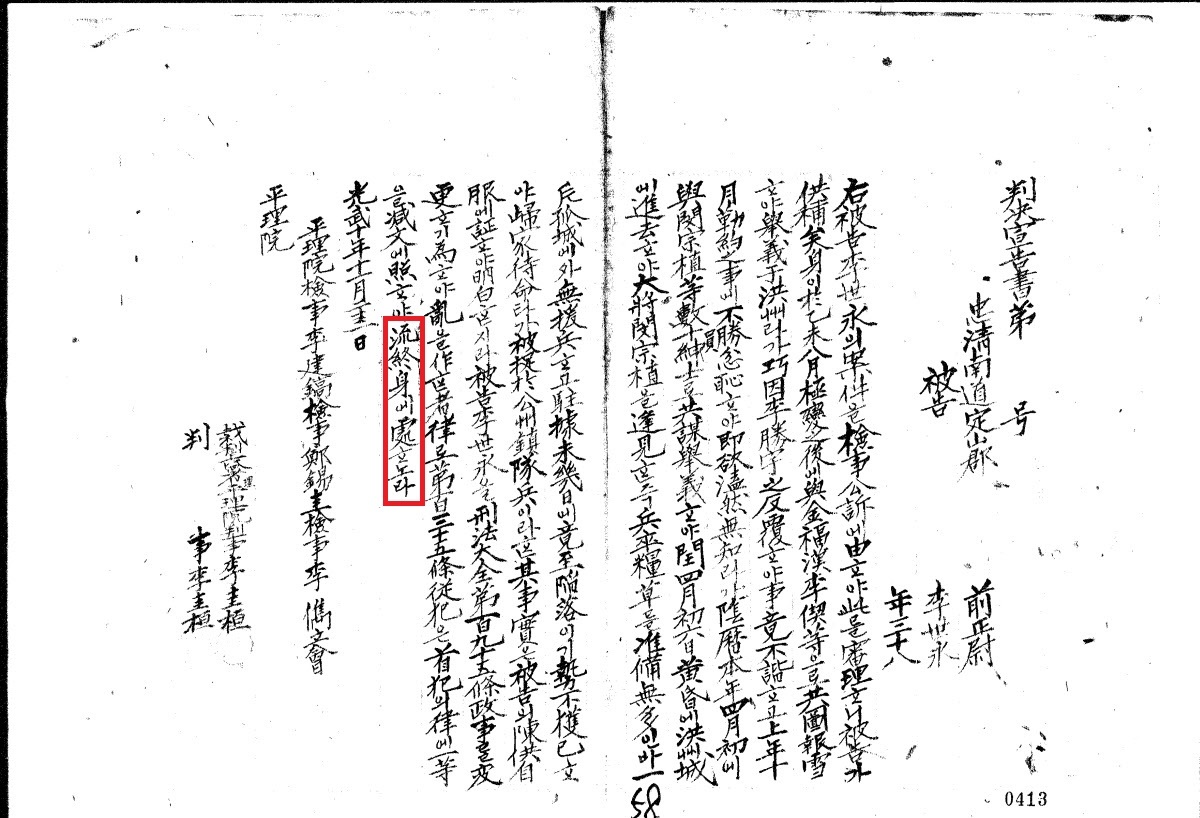 判決宣告書第 号
忠淸南道定山郡 前正尉
被告 李世永
年三十八
右被告李世永의案件을檢事公訴에由ᄒᆞ야此를審理ᄒᆞ니被告가
供稱矣身이於乙未八月極變之後에與金福漢李偰等으로共圖報雪
ᄒᆞ야擧義于洪州라가巧因李勝宇之反覆ᄒᆞ야事竟不諧ᄒᆞ고上年十
月勒約之事에不勝忿恥ᄒᆞ야卽欲溘然無知라가陰曆本年四月初에
與閔宗植等數十紳士로共謀擧義ᄒᆞ야閏四月初六日黃昏에洪州城
에進去ᄒᆞ야大將閔宗植을逢見ᄒᆞᆫ즉兵卒糧草를准備無多인바一
片孤城에外無援兵ᄒᆞ고駐據未幾日에竟至陷落이기勢不獲已ᄒᆞ
야歸家待命라가被捉於公州鎭隊兵이라ᄒᆞᆫ其事實은被告의陳供自
服에証ᄒᆞ야明白ᄒᆞᆫ지라被告李世永을刑法大全第百九十五條政事를変
更ᄒᆞ기爲ᄒᆞ야亂을作ᄒᆞᆫ者律로第百三十五條從犯은首犯의律에一等
을減文에照ᄒᆞ야流終身에處ᄒᆞ노라
光武十年十一月 日
平理院檢事李建鎬檢事鄭錫圭檢事李儁立會
平理院
平理院判事李圭桓
判 事李圭桓
0413